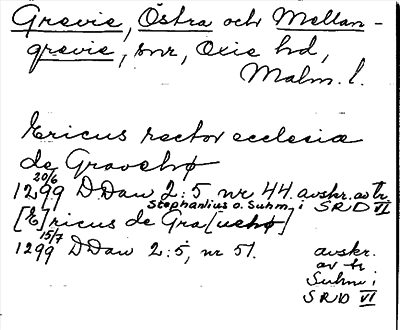 Grevie, Östra och Mellan-
grevie, snr, Oxie hd,
Malm. l.
Ericus rector ecclesiæ
de Gravehø
20/6
1299 DDan 2:5 nr 44. avskr. av tr
Stephanius o. Suhm, i SRD VI
[E]ricus de Gra[uehø]
15/7
1299 DDan 2:5, nr 51. avskr.
av tr.
Suhm i
SRD VI